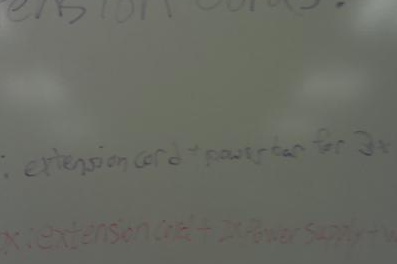 extension cords.
: extension cord + power bar for 3x
x: extension cord + 2x Power Supply +